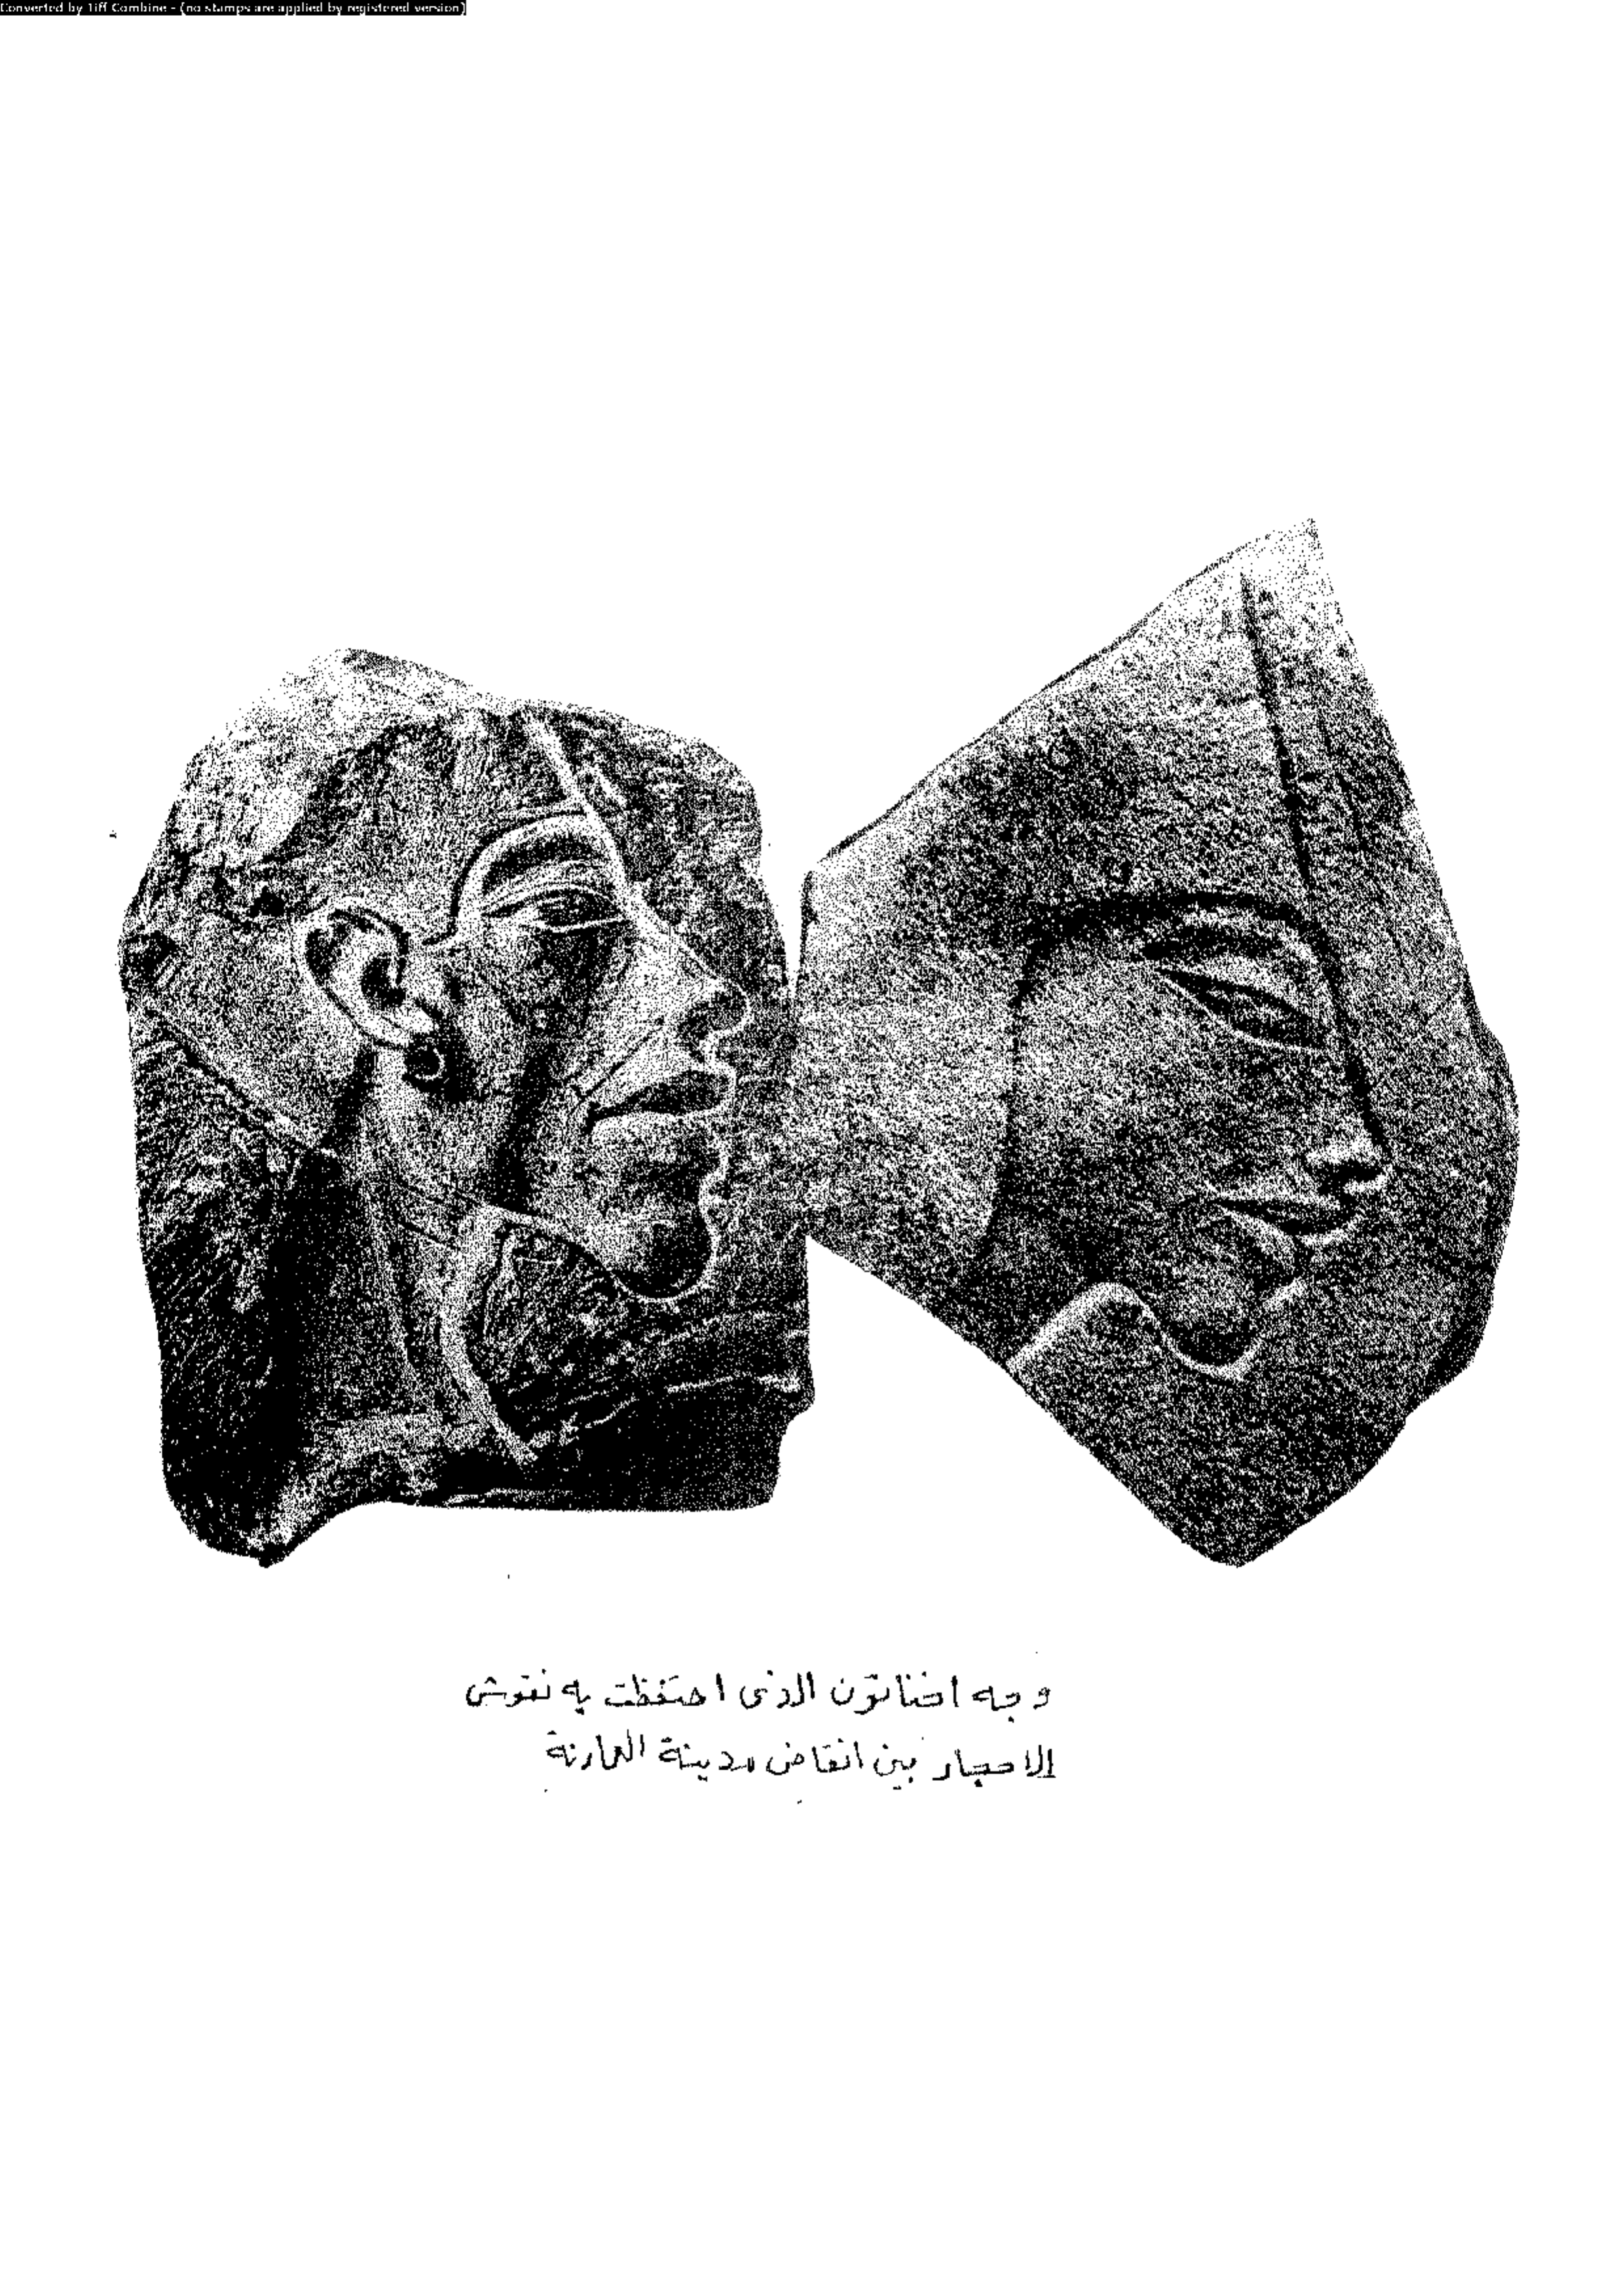 Converted by Tiff Combine - (no stamps are applied by registered version)
وجه اخناتون الذى احتفظت به نقوش
الاحجار بين انقاض مدينة العمارنة